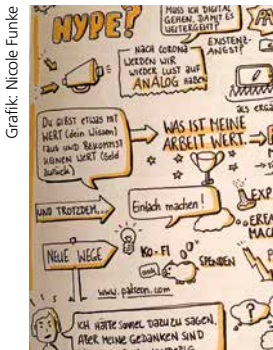 Grafik: Nicole Funke
HYPE?
MUSS ICH DIGITAL
GEHEN, DAMIT ES
WEITERGEHT?
EXISTENZ-
ANGST?
NACH CORONA
WERDEN WIR
WIEDER LUST AUF
ANALOG HABEN
als ergä
DU GIBST ETWAS MIT
WERT (dein Wissen)
raus und BEKOMMST
KEINEN WERT (Geld
zurück)
WAS IST MEINE
ARBEIT WERT.
UND TROTZDEM...
Einfach machen!
MACH
NEUE WEGE
KO-FI
SPENDEN
www.patreon.com
ICH HÄTTE SOVIEL DAZU ZU SAGEN,
ABER MEINE GEDANKEN SIND